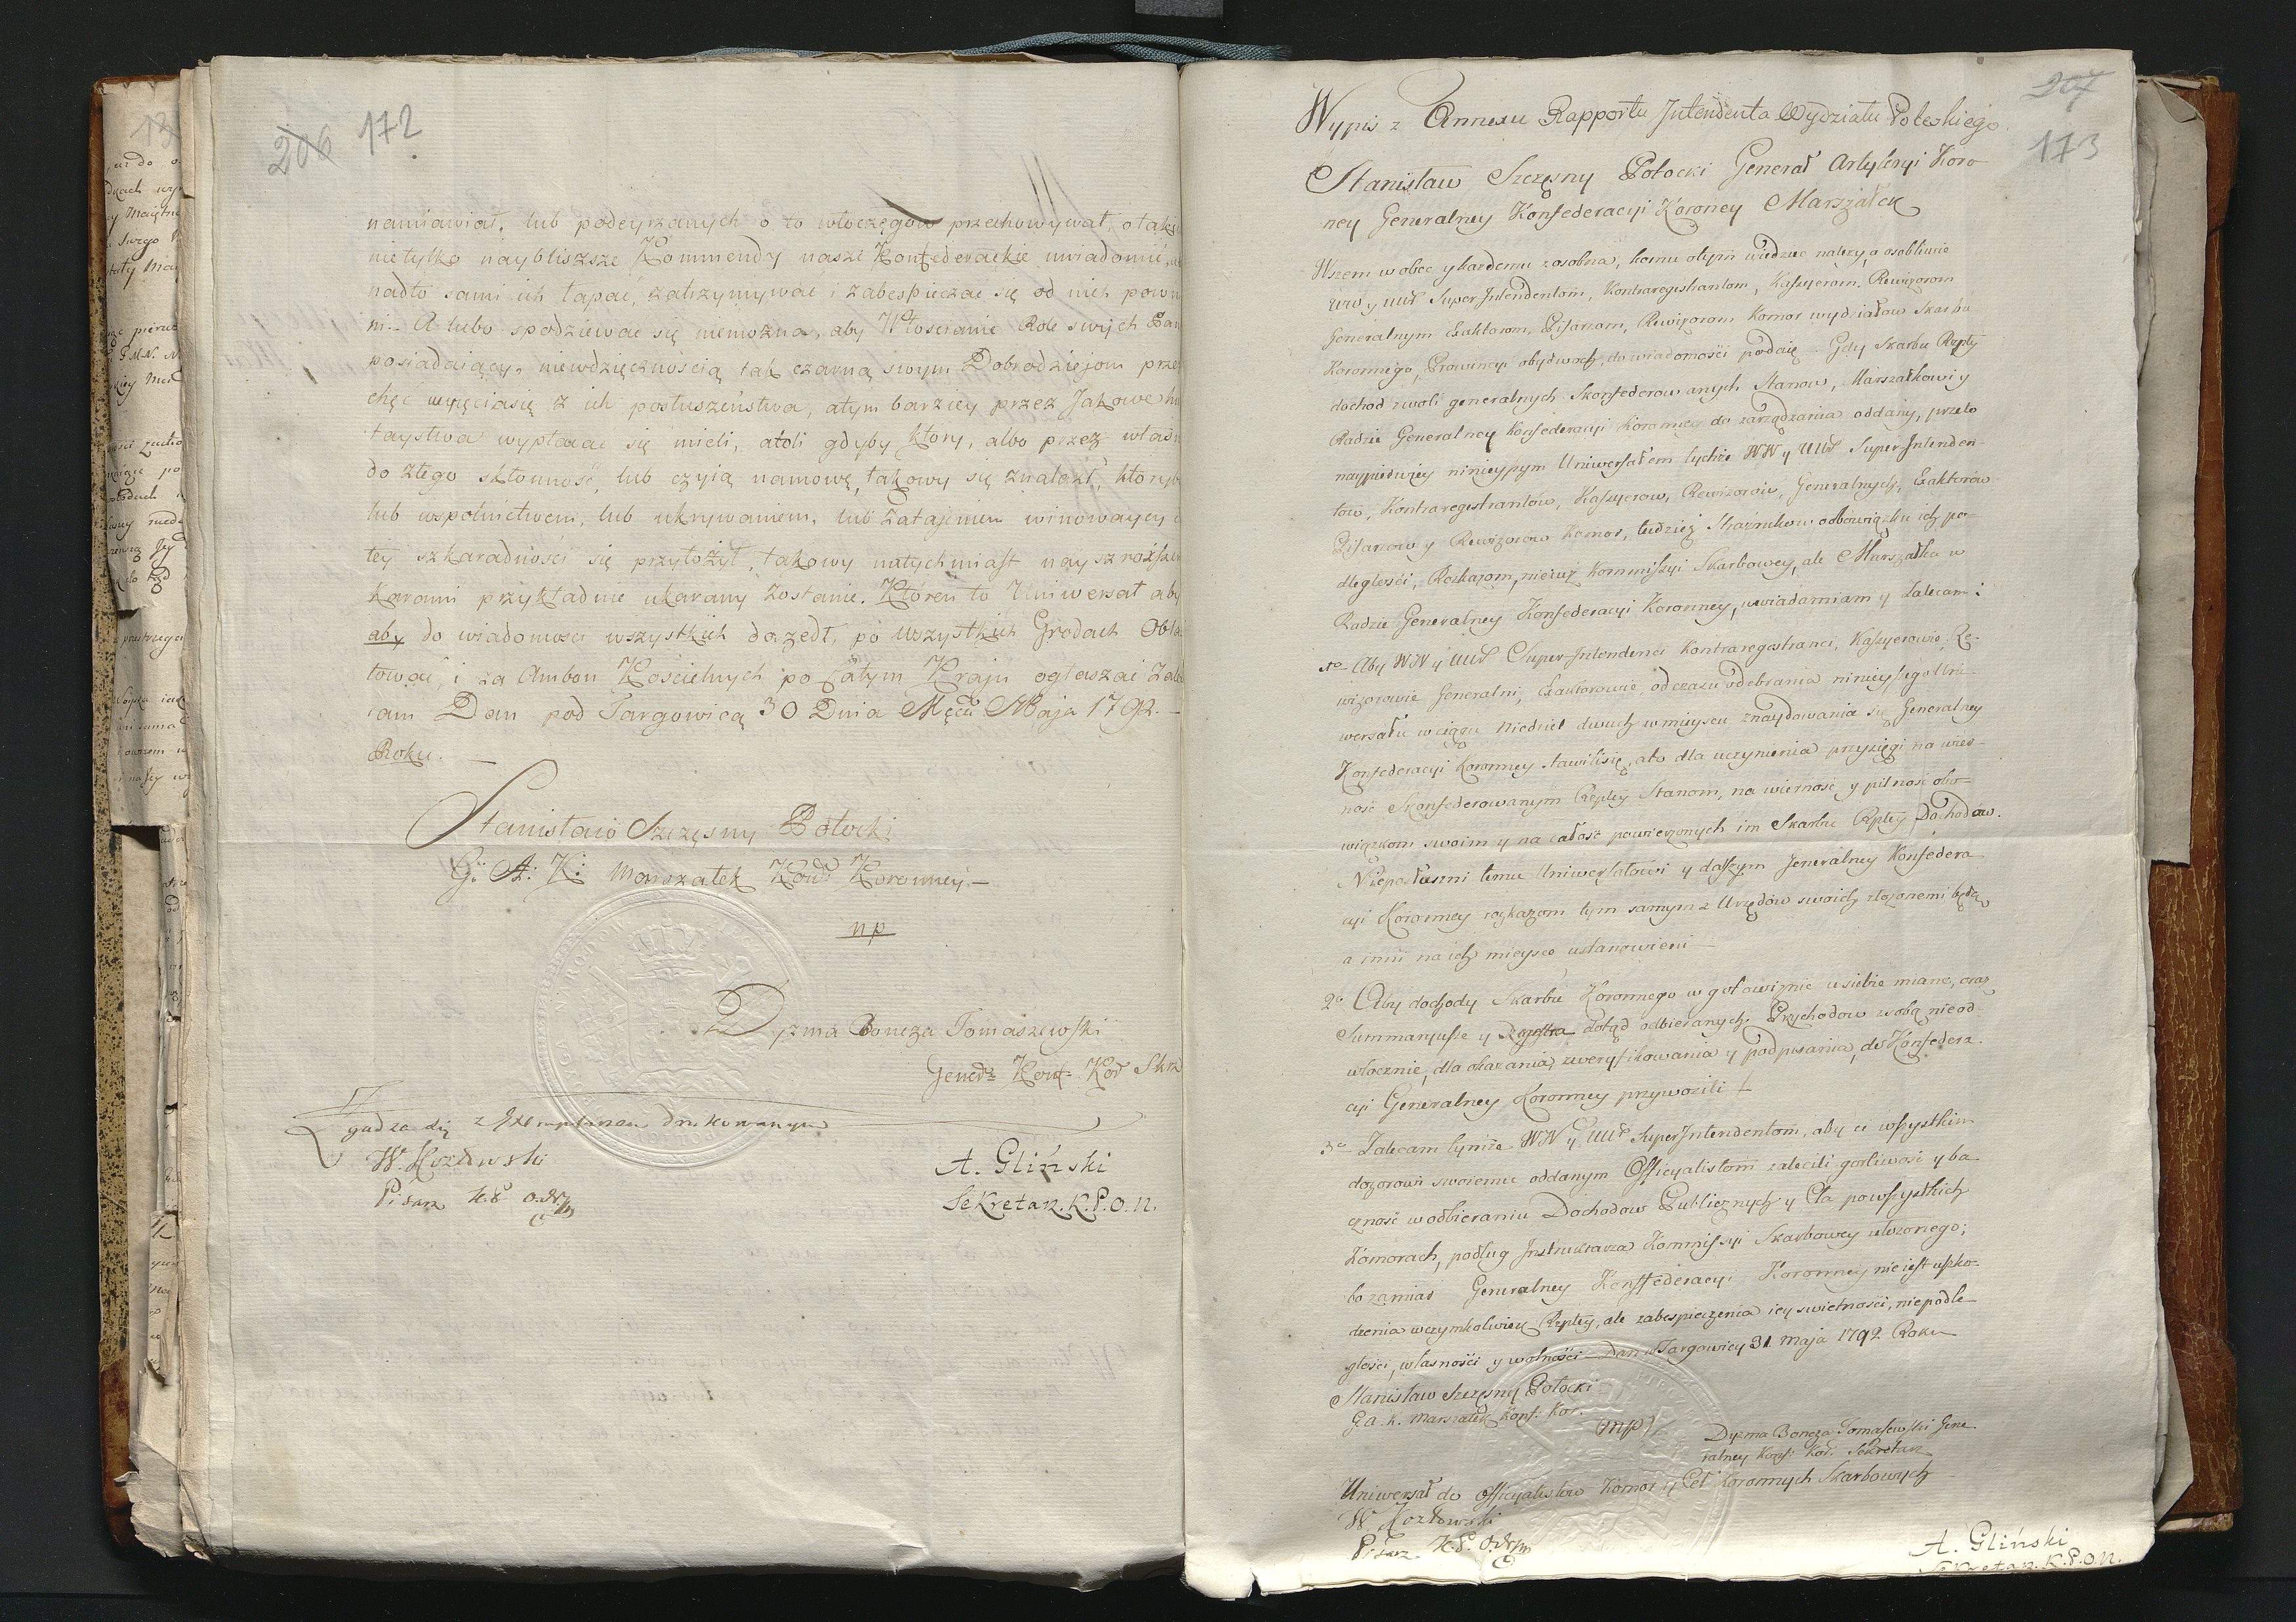 206 172
namiawiał, lub podeyrzanych o to włoczęgow przechowywał, o takim
nietylko naybliższe Kommendy nasze Konfederackie uwiadomić,
nadto sami ich łapać, zatrzymywać i zabespieczać się od nich powin
ni. A lubo spodziewać się niemożna, aby Włościanie Role swych Pan
posiadaiący, niewdzięcznością tak czarną swym Dobrodziejom przez
chęc wyięciasię z ich posłuszeństwa, atym barziey przez Jakowe hu
taystwa wypłacac się mieli, atoli gdyby ktory, albo przez własn
do złego skłonność, lub czyią namowę, takowy się znalazł, ktoryb
lub wspolnictwem, lub ukrywaniem, lub zatajeniem winowaycy
tey szkaradności się przyłożył, takowy natychmiast naysroższe
Karami przykładnie ukarany zostanie. Któren to Uniwersał aby
aby do wiadomości wszystkich doszedł, po wszystkich Grodach Obla
tować, i za Ambon Kościelnych po całym Kraju ogłaszać zale
cam Dan pod Targowicą 30 Dnia Męca Maja 1792.
Roku.
Stanisław Szczęsny Potocki
G: A: K: Marszałek Konf: Koronney
np
Dyzma Boncza Tomaszewski
Gener: Konf. Kor Skr
Zgadza się z Exemplarzem drukowanym
W. Kozłowski
Pisarz K.P. O.
A. Gliński
Sekretarz. K.P.O.N.
207
173
Wypis z Annexu Rapportu Intendenta Wydziału Poleskiego.
Stanisław Szczęsny Potocki Generał Artyleryi Koro
ney Generalney Konfederacyi Koroney Marszałek
Wszem wobec y każdemu zosobna, komu otym wiedziec należy, a osobliwie
WW y UUr SuperIntendentom, Kontraregestrantom, Kassyerom, Rewizorom
Generalnym Exaktorom, Pisarzom, Rewizorom Komor wydziałow Skarbu
Koronnego, Prowincyi obydwoch, do wiadomości podaię. Gdy Skarbu Rzpltey
dochod zwoli generalnych Skonfederowanych Stanow, Marszałkowi y
Radzie Generalney Konfederacyi Koronney do zarządzania oddany, przeto
nayprędzey ninieyszym Uniwersałem tychże WW y UUr SuperIntenden
tow, Kontraregestrantow, Kassyerow, Rewizorow, Generalnych, Exaktorów
Pisarzow y Rewizorow Komor, tudzież Strażnikow o obowiązku ich po
dległości, Rozkazom, nie iuż Kommissyi Skarbowey, ale Marszałka w
Radzie Generalney Konfederacyi Koronney, uwiadamiam y Zalecam:
1o Aby WW y UUr SuperIntendenci Kontraregestranci, Kassyerowie, Re-
wizorowie Generalni, Exaktorowie, od czasu odebrania ninieyszego Uni
wersału wciągu Niedziel dwuch w mieyscu znaydowania się Generalney
Konfederacyi Koronney stawilisię, ato dla uczynienia przysięgi na wier
ność Skonfederowanym Rzpltey Stanom, na wierność y pilność obo
wiązkom swoim y na całość powierzonych im Skarbu Rzpltey Dochodów.
Nieposłuszni temu Uniwersałowi y dalszym Jeneralney Konfedera
cyi Koronney rozkazom tym samym z Urzędów swoich złożonemi będą
a inni na ich mieysce ustanowieni
2o Aby dochody Skarbu Koronnego w gotowiznie usiebie miane, oraz
Summaryusze y Regestra dotąd odbieranych Przychodow zsobą nieod
włocznie, dla okazania, zweryfikowania y podpisania, do Konfedera
cyi Generalney Koronney przywozili
3o Zalecam tymże WW y UUr SuperIntendentom, aby ci wszystkim
dozorowi swoiemu oddanym Officyalistom zalecili gorliwość y ba
czność w odbieraniu Dochodow Publicznych y Cła po wszystkich
Komorach, podług Instruktarza Kommissyi Skarbowey ułożonego;
bo zamiar Generalney Konffederacyi Koronney nie iest uszko-
dzenia wczymkolwiek Rzpltey, ale zabespieczenia iey swietności, niepodle
głości, własności y wolności Dan w Targowicy 31 Maja 1792 Roku
Stanisław Szczęsny Potocki
G.a.K. Marszałek Konf: Kor:
(mp)
Dyzma Boncza Tomaszewski Gene
ralney Konf: Kor. Sekretarz
Uniwersał do Officyalistow Komor y Ceł Koronnych Skarbowych
W Kozłowski
Pisarz K.P. O.
A. Gliński
Sekretarz. K.P.O.N.